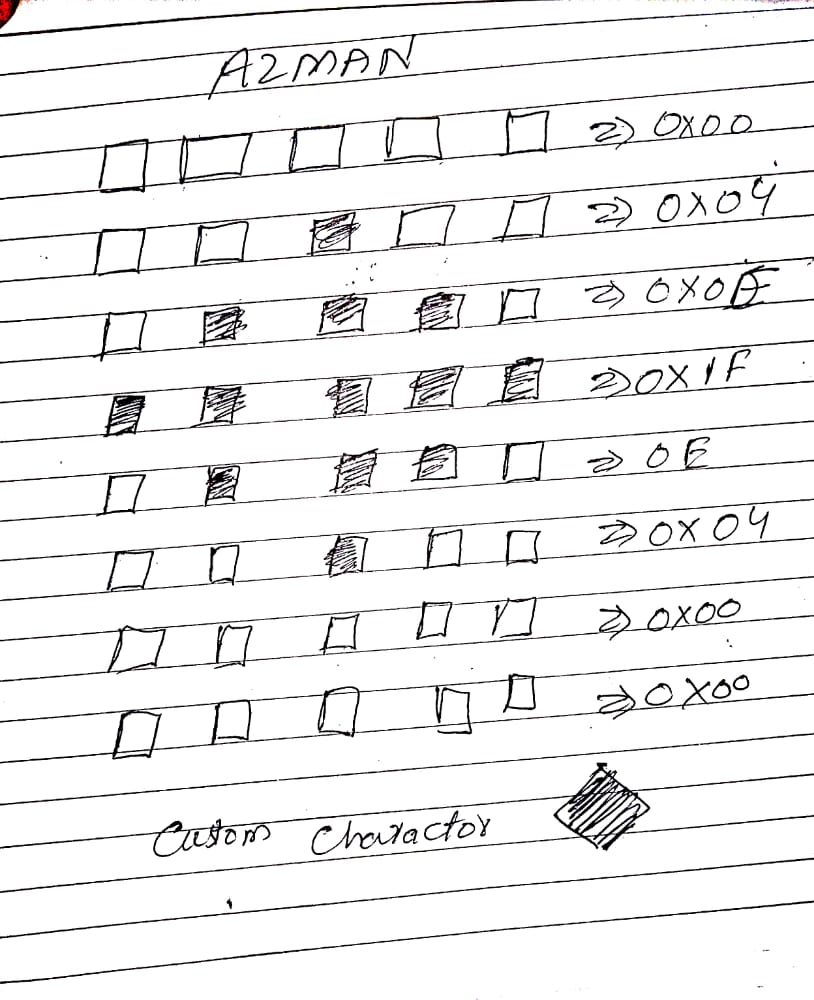 AZMAN
=> 0X00
=> 0X04
=> 0X0E
=> 0X1F
=> 0E
=> 0X04
=> 0X00
=> 0X00
Custom Charactor